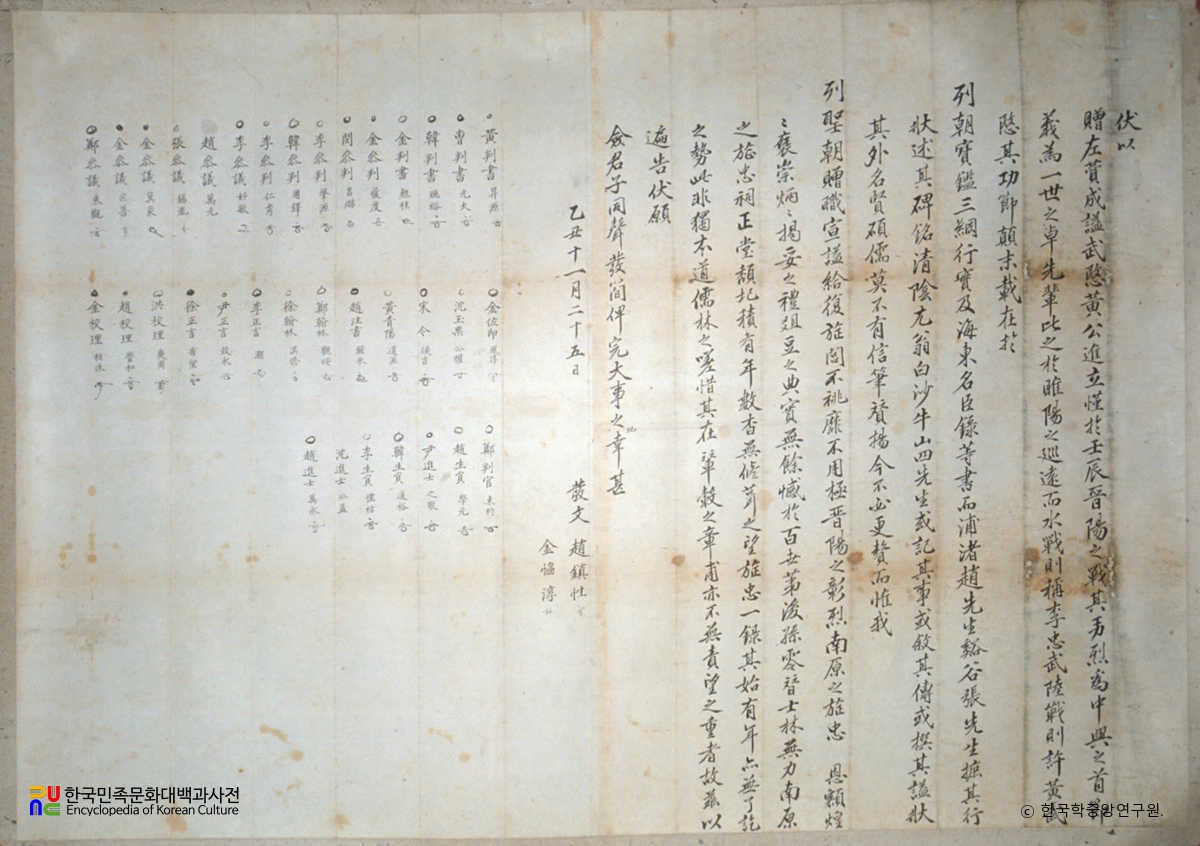 伏以
贈左贊成謚武愍黃公進立慬於壬辰晉陽之戰其勇烈爲中興之首
義爲一世之卓先輩比之於睢陽之巡遠而水戰則稱李忠武陸戰則許黃武
愍其功節顚末載在於
列朝寶鑑三綱行實及海東名臣錄等書而浦渚趙先生谿谷張先生摭其行
狀述其碑銘淸陰尤翁白沙牛山四先生或記其事或敍其傳或撰其謚狀
其外名賢碩儒莫不有信筆贊揚今不必更贅而惟我
列聖朝贈職宣謚給復旌閭不祧靡不用極晉陽之彰烈南原之旌忠 恩額煌
〻褒崇炳〻揭妥之禮俎豆之典實無餘憾於百世第後孫零替士林無力南原
之旌忠祠正堂頹圮積有年數杳無修葺之望旌忠一錄其始有年亦無了訖
之勢此非獨本道儒林之嗟惜其在輦轂之章甫亦不無責望之重者故玆以
遍告伏願
僉君子同聲發簡俾完大事之地幸甚
乙丑十一月二十五日
發文 趙鎭性
金 淳
黃判書 昇源
曺判書 允大
韓判書
金判書
金參判
閔參判 昌爀
李參判 肇源
韓參判 用鐸
李參判
李參議 好敏
趙參議 萬元
張參議 錫胤
金參議
金參議
鄭參議 東觀
金佐郞
沈玉果 公權
宋 令
黃青陽
趙注書 鍾永
鄭翰林
徐翰林
李正言 潮
尹正言 致永
徐正言 有望
洪校理 奭周
趙校理 晉和
金校理 相休
鄭判官 東
趙生員 學元
尹進士 之
韓生員
李生員 儒
沈進士 公
趙進士 萬永
한국민족문화대백과사전
Encyclopedia of Korean Culture
© 한국학중앙연구원.